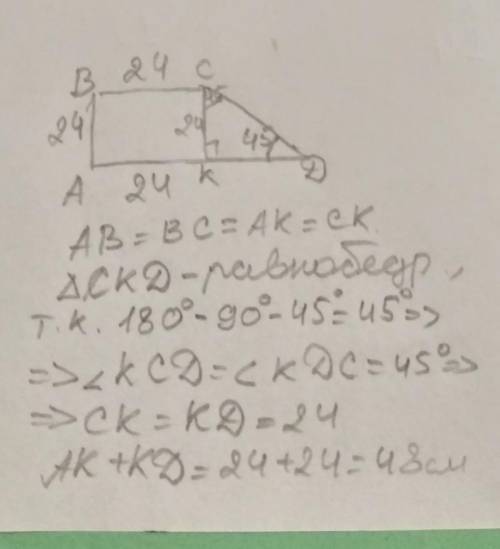 24
B C
24 24 45°
A 24 K D
AB = BC = AK = CK
△CKD - равнобедр,
т.к. 180° - 90° - 45° = 45° =>
=> ∠KCD = ∠KDC = 45° =>
=> CK = KD = 24
AK + KD = 24 + 24 = 48см